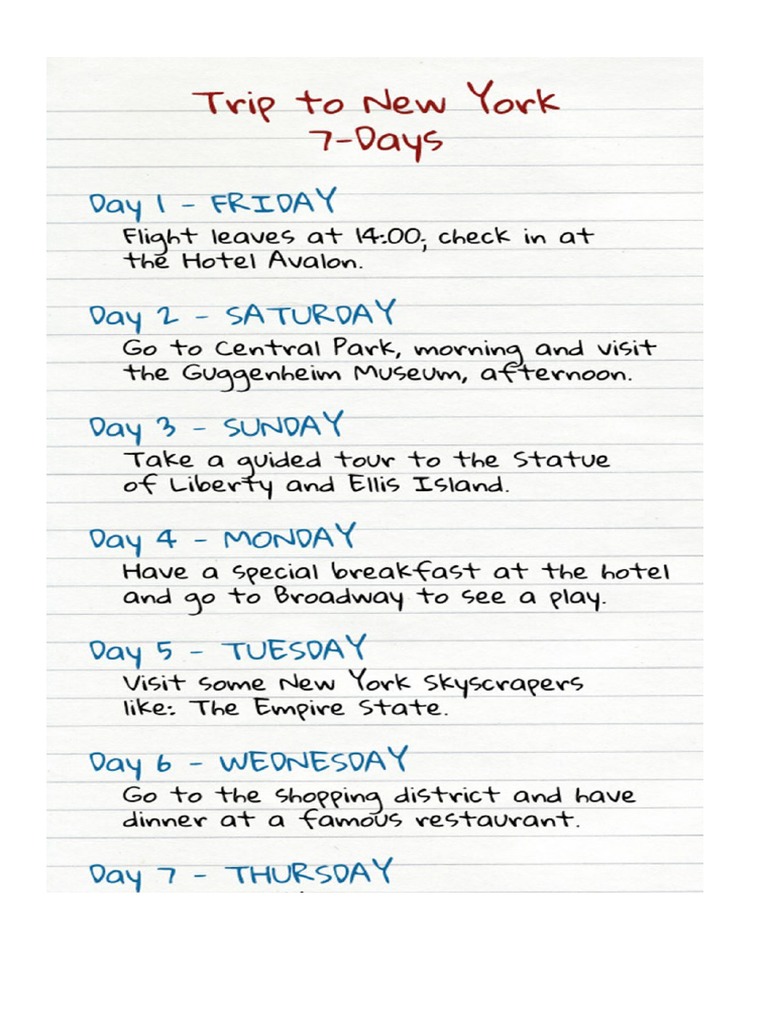 Trip to New York
7-Days
Day 1 - FRIDAY
Flight leaves at 14:00; check in at
the Hotel Avalon.
Day 2 - SATURDAY
Go to Central Park, morning and visit
the Guggenheim Museum, afternoon.
Day 3 - SUNDAY
Take a guided tour to the Statue
of Liberty and Ellis Island.
Day 4 - MONDAY
Have a special breakfast at the hotel
and go to Broadway to see a play.
Day 5 - TUESDAY
Visit some New York Skyscrapers
like: The Empire State.
Day 6 - WEDNESDAY
Go to the shopping district and have
dinner at a famous restaurant.
Day 7 - THURSDAY